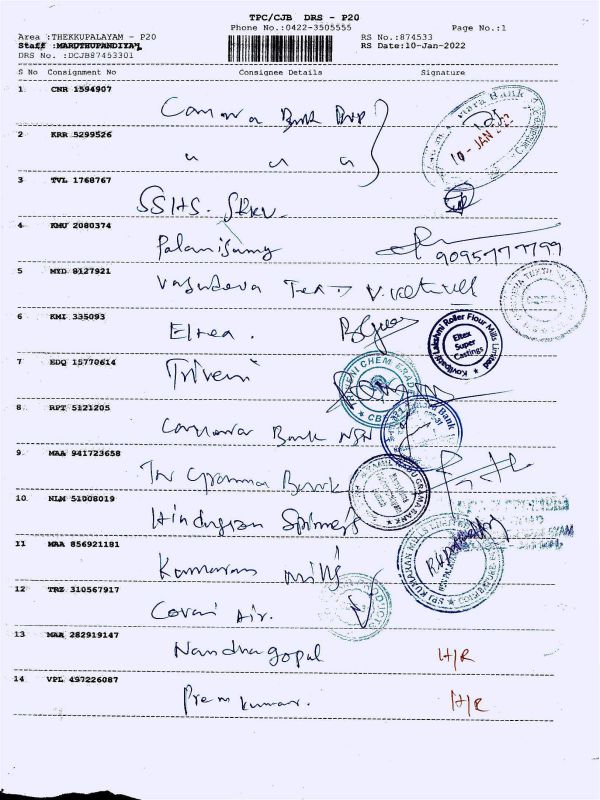 TPC/CJB DRS - P20
Phone No.:0422-3505555 Page No.:1
Area :THEKKUPALAYAM - P20 RS No.:874533
Staff :MARUTHUPANDIYAN RS Date:10-Jan-2022
DRS No. :DCJB87453301
S No Consignment No Consignee Details Signature
1 CNR 1594907
Canara Bank
2 KRR 5299526
" " "
10 - JAN 2022
3 TVL 1768767
SSHS.
4 KMU 2080374
Palanisamy 9095777799
5 MYD 8127921
Vasudeva Tea
6 KMI 335093
Eltex.
Kovilpatti Lakshmi Roller Flour Mills Limited
Eltex Super Castings
7 EDQ 15770614
Triveni
TRIVENI CHEM TRADE
8 RPT 5121205
Canara Bank NSN
9 MAA 941723658
TN Grama Bank
10 NLM 51008019
Hindustan Spinners
11 MAA 856921181
Kumaran Mills
SRI KUMARAN MILLS
12 TRZ 310567917
Covai Air.
13 MAR 282919147
Nandhagopal H/R
14 VPL 497226087
Prem kumar. H/R